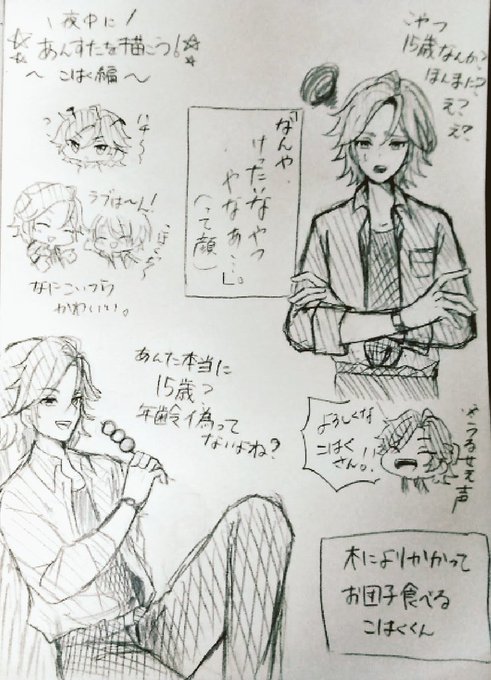 夜中に!
あんすたを描こう!
～こはく編～
こやつ
15歳なんか?
ほんまに?
え?
え?
「なんや
けったいなやつ
やなあ…」
(って顔)
ラブは～ん!
なにこいつら
かわいい。
あんた本当に
15歳?
年齢偽って
ないよね?
よろしくな
こはく
さん。!!
※うるせえ声
木によりかかって
お団子食べる
こはくくん